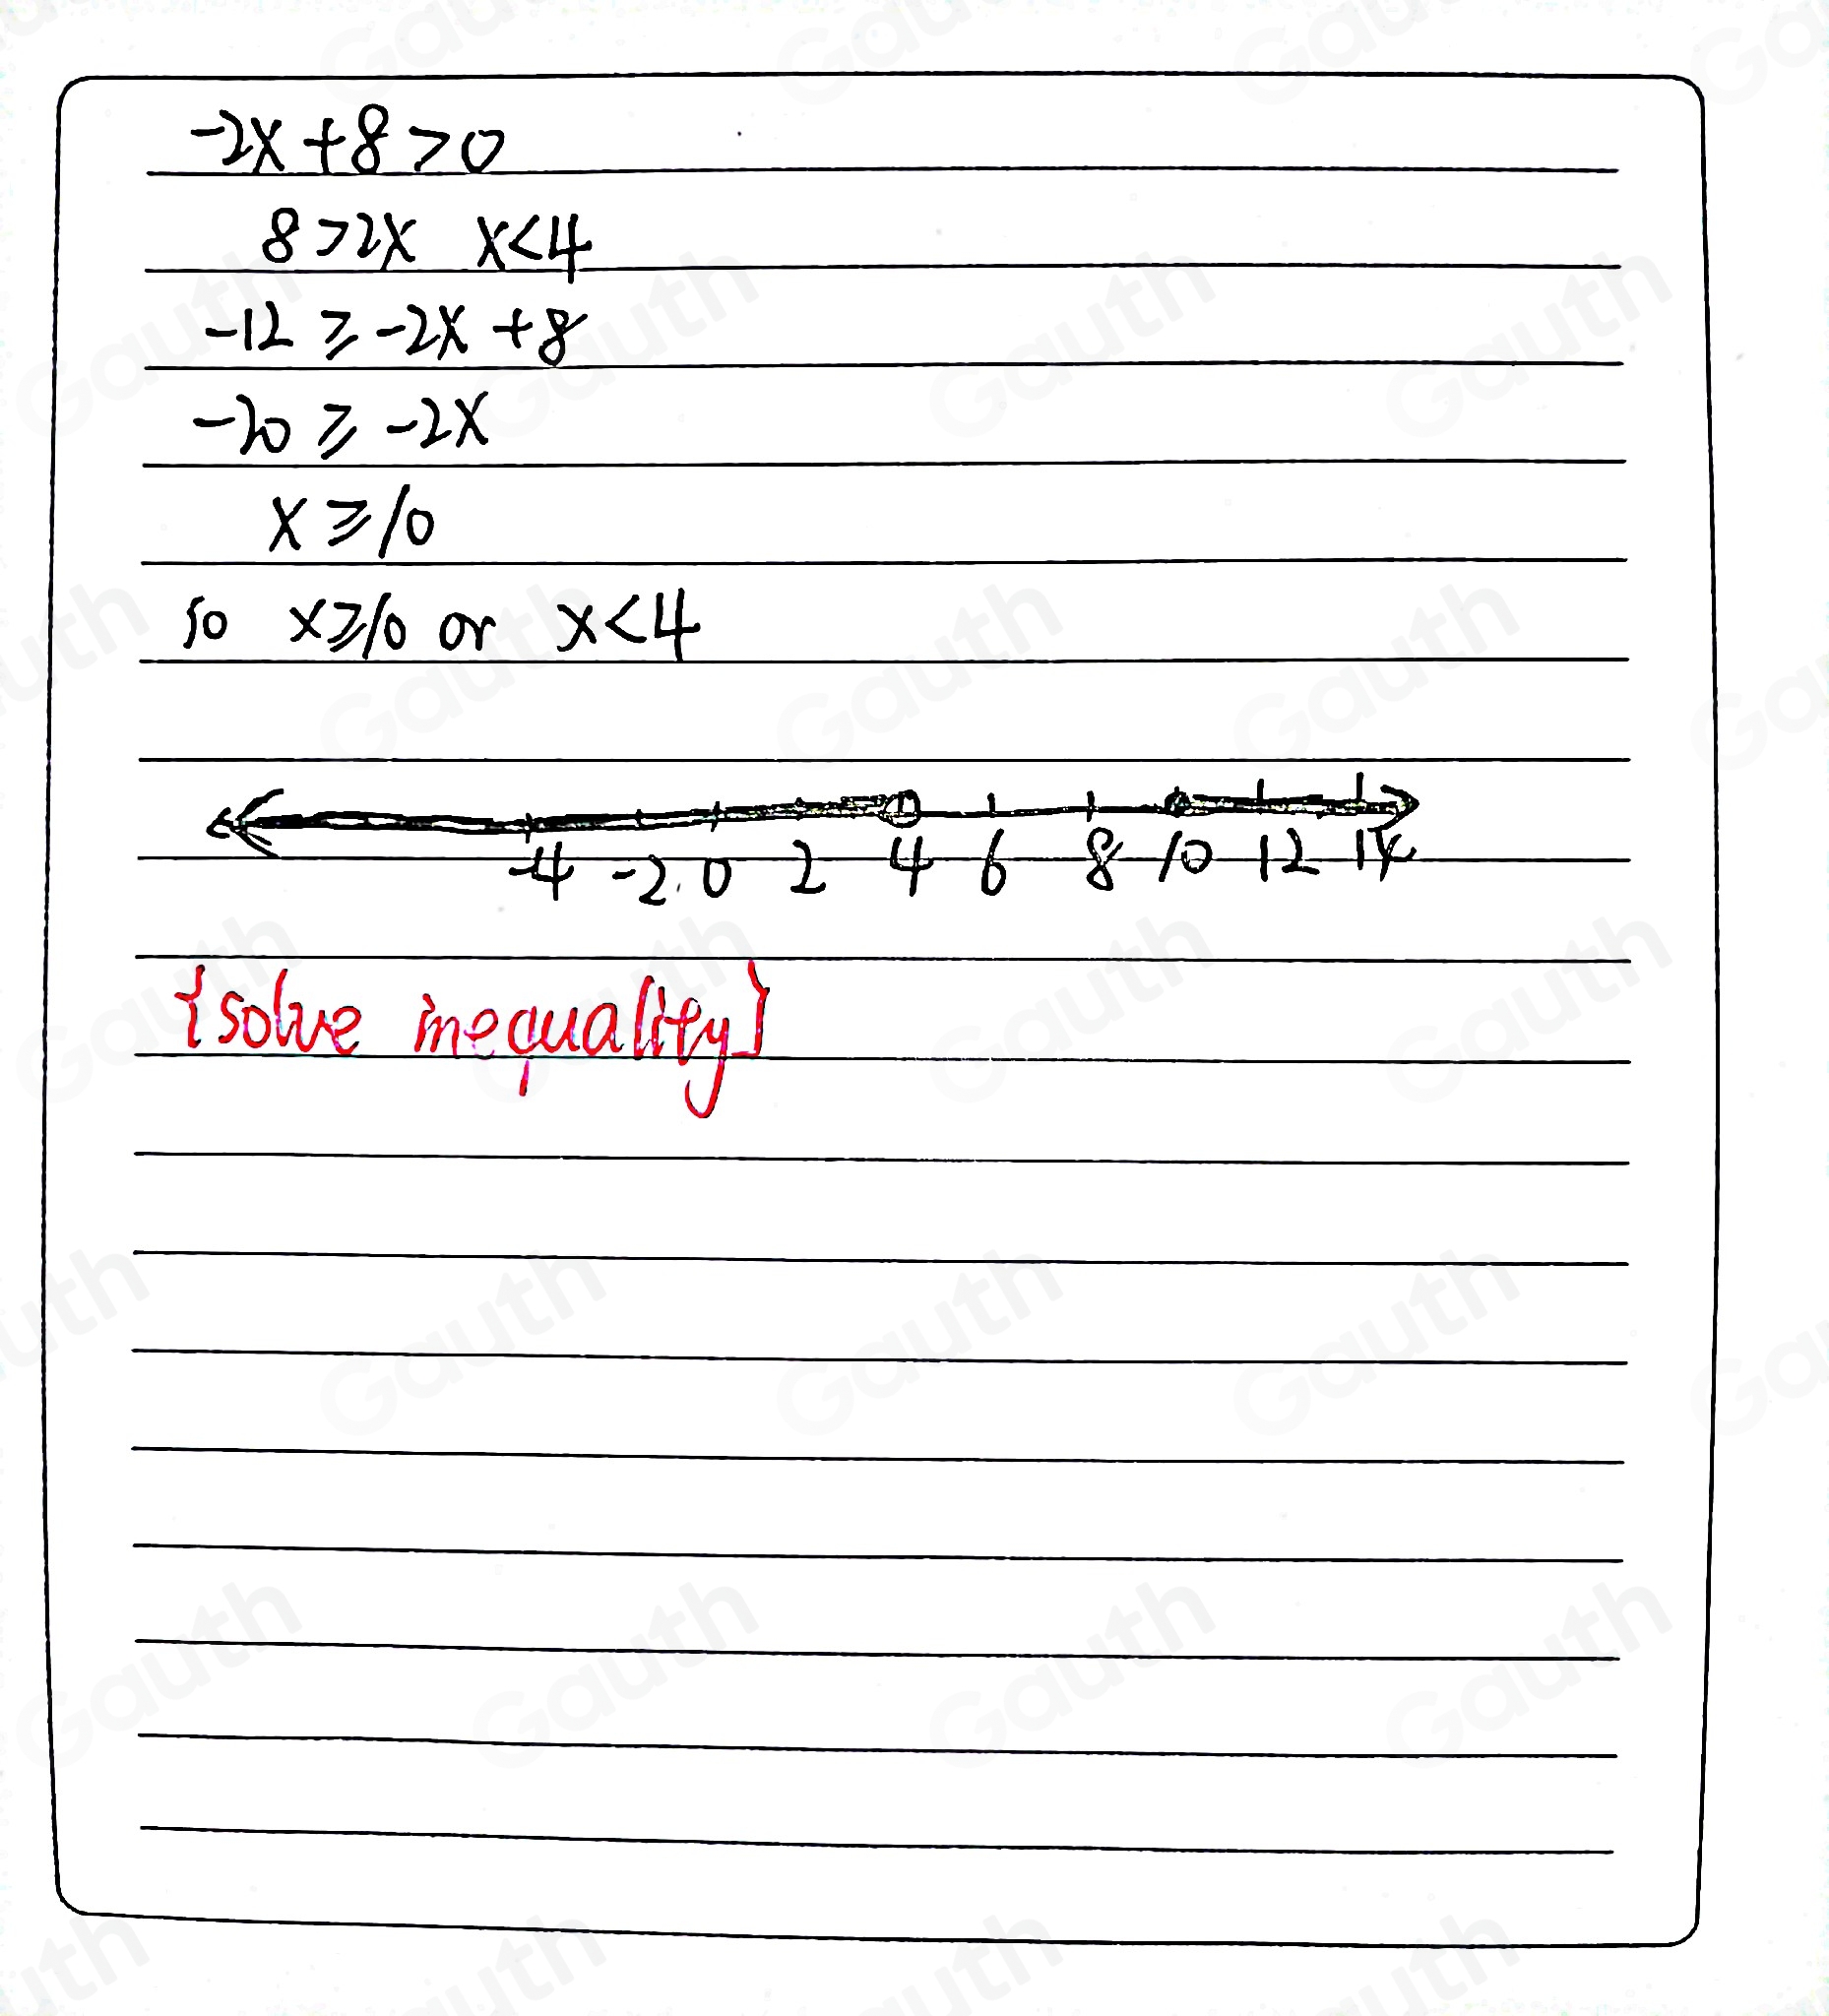 -2x+8>0
8>2x x<4
-12 ≥ -2x +8
-20 ≥ -2x
x ≥ 10
so x≥10 or x<4
-4 -2 0 2 4 6 8 10 12 14
{solve inequality}